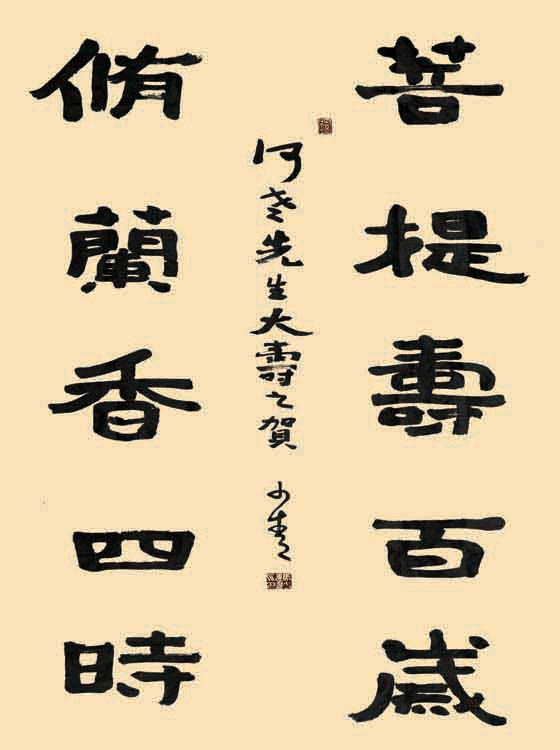 菩提壽百歲
脩蘭香四時
何老先生大壽之賀
少青